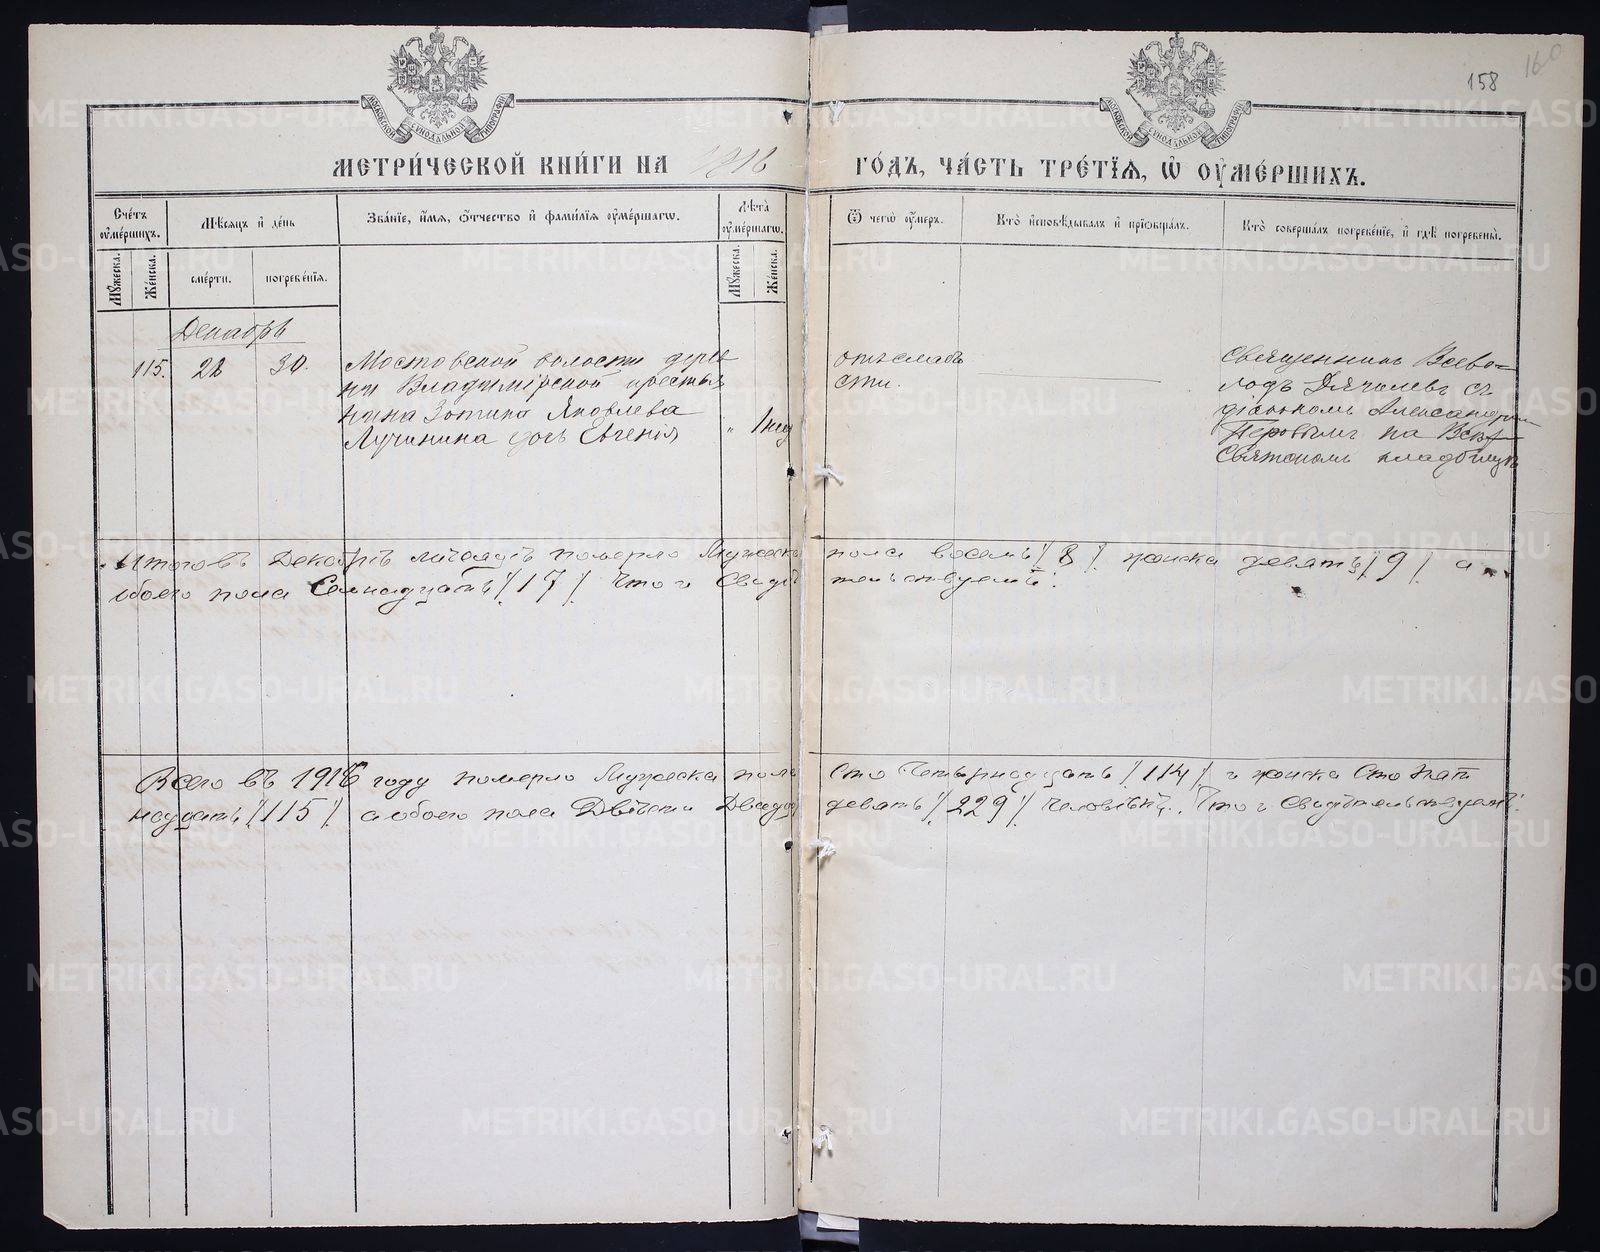 158
160
МОСКОВСКОЙ СѴНОДАЛЬНОЙ ТИПОГРАФІИ
МОСКОВСКОЙ СѴНОДАЛЬНОЙ ТИПОГРАФІИ
МЕТРИ́ЧЕСКОЙ КНИ́ГИ НА 1916 ГО́ДЪ, ЧА́СТЬ ТРЕ́ТІѦ, Ѡ҆ ОУ҆МЕ́РШИХЪ.
Сче́тъ оу҆ме́ршихъ.
Мѣ́сяцъ и҆ де́нь
Зва́нїе, и҆́мѧ, ѻ҆́тчество и҆ фами́лїѧ оу҆ме́ршагѡ.
Лѣ̀та̀ оу҆ме́ршагѡ.
Ѿ чегѡ̀ оу҆́меръ.
Кто̀ и҆сповѣ́дывалъ и҆ прїѡбща́лъ.
Кто̀ соверша́лъ погребе́нїе, и҆ гдѣ̀ погребены̀.
Му́жеска.
Же́нска.
сме́рти.
погребе́нїѧ.
Му́жеска.
Же́нска.
Декабрь
115. 28 30. Мостовской волости дерев
ни Владимірской крестья
нина Зотика Яковлева
Лучинина дочь Евгенія " 1 нед
отъ слабо
сти.
Священникъ Всево
лодъ Дягилевъ съ
діакономъ Александромъ
Перовымъ на Всѣх
Святскомъ кладбищѣ
Итого въ Декабрѣ мѣсяцѣ померло Мужеска пола восемь /8/. женска девять /9/ а
обоего пола Семнадцать /17/. Что и Свидѣтельствуемъ:
Всего въ 1916 году померло Мужеска пола Сто Четырнадцать /114/ и женска Сто Пят
надцать /115/. а обоего пола Двѣсти Двадцать девять /229/ человѣкъ. Что и Свидѣтельствуемъ:
METRIKI.GASO-URAL.RU